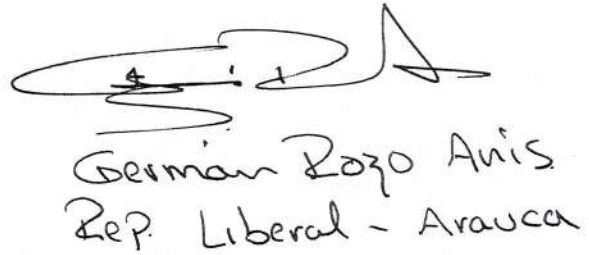 Germán Rozo Anis
Rep. Liberal - Arauca